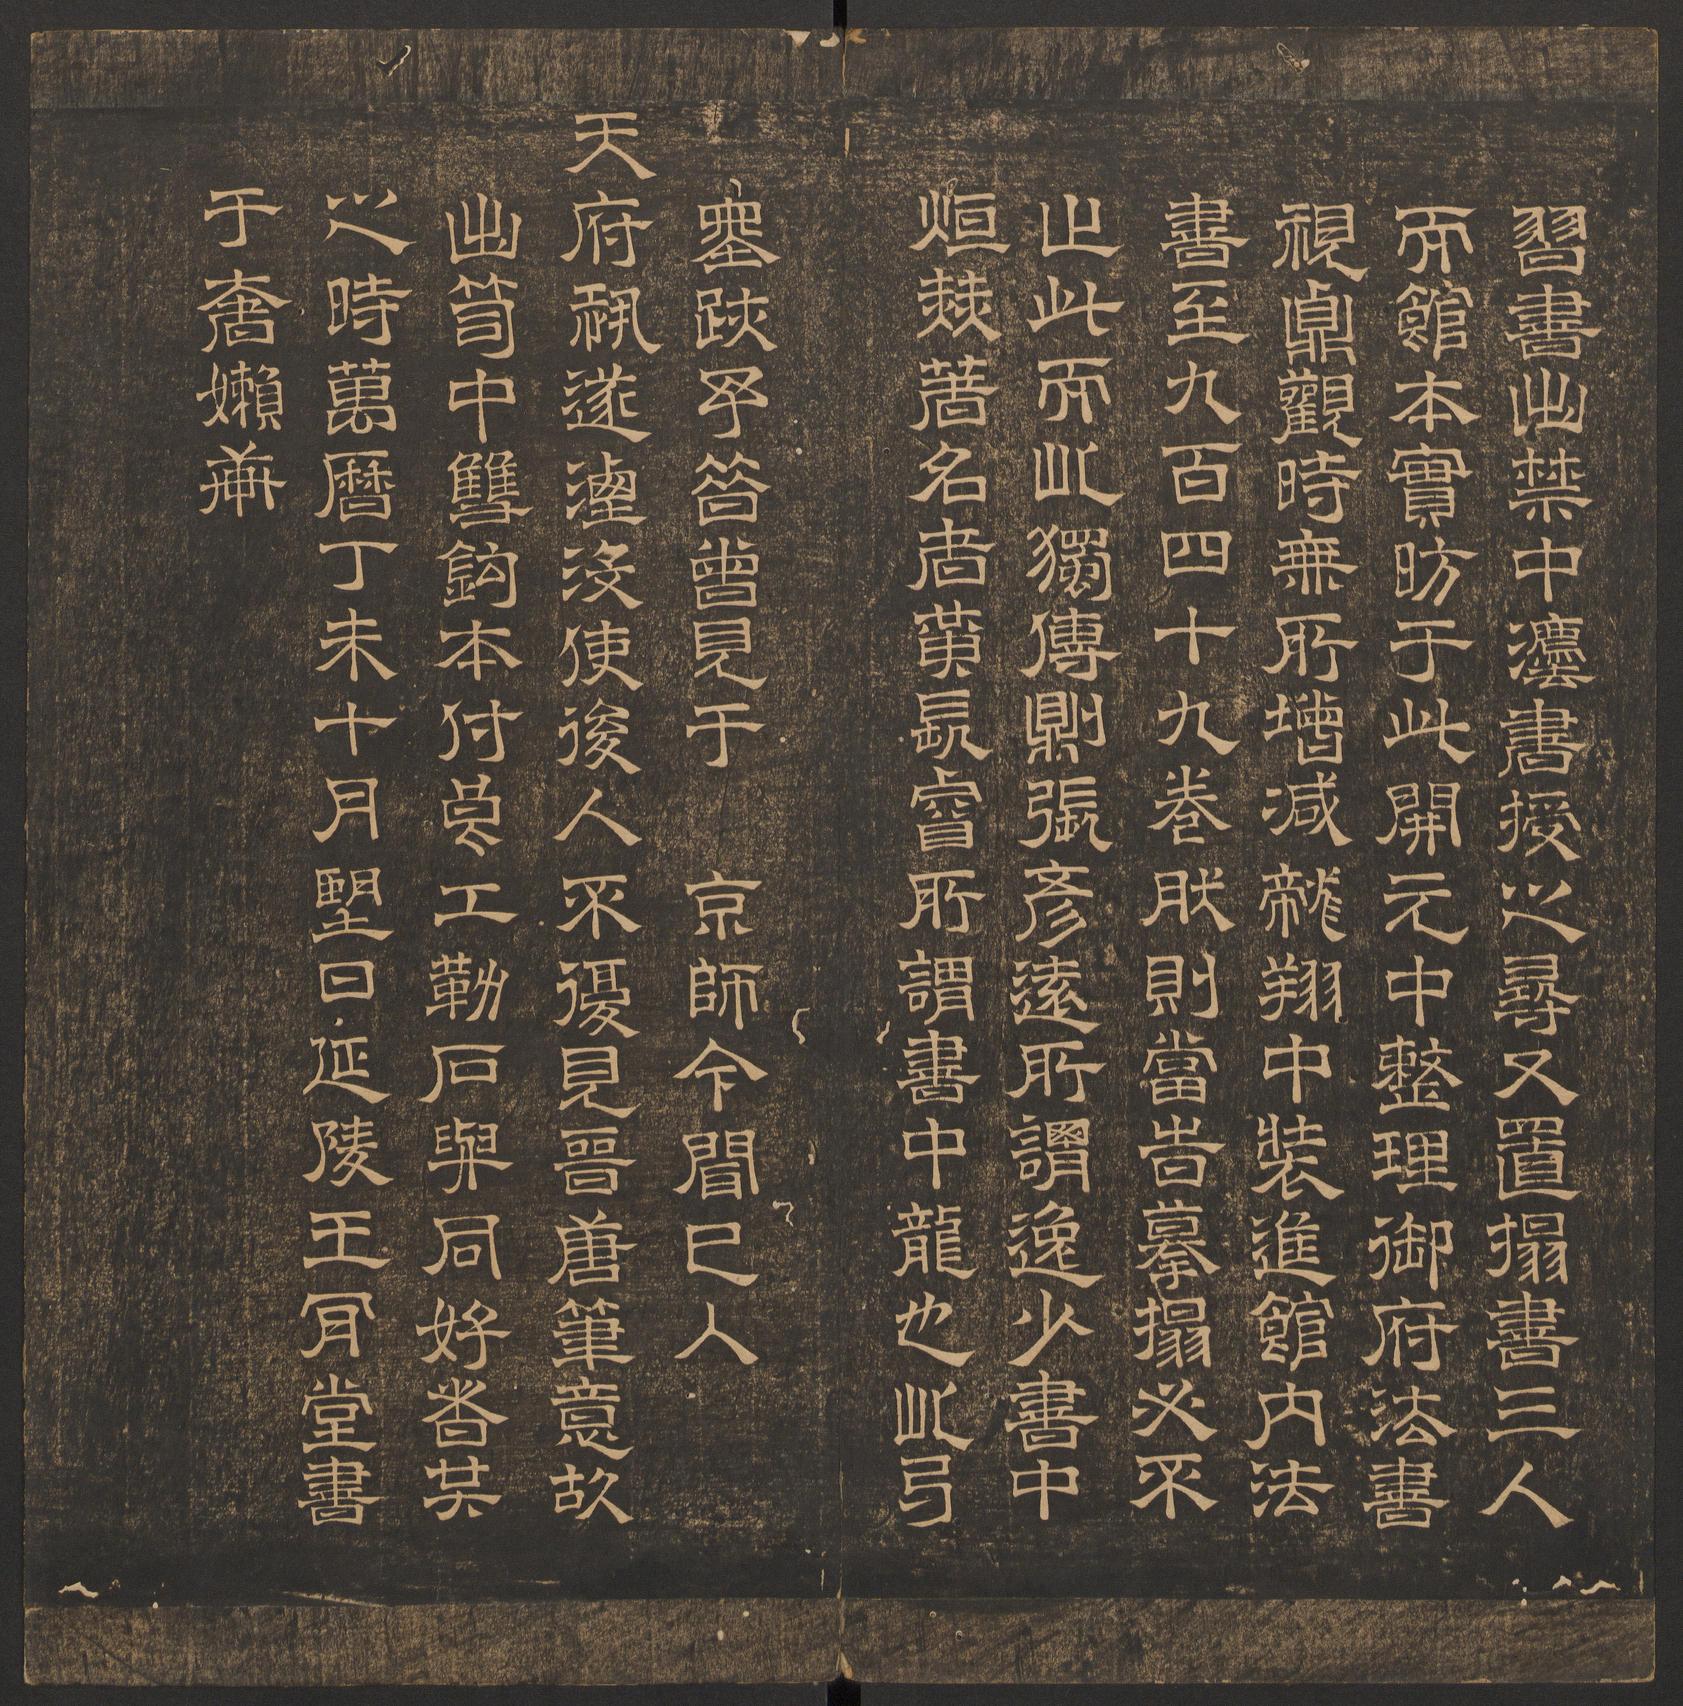 習書出禁中灋書授之尋又置搨書三人
而館本實昉于此開元中整理御府法書
視鼎觀時無所增減龍翔中裝進館内法
書至九百四十九卷然則當告摹搨必不
止此而此獨傳則張彥遠所謂逸少書中
烜䓗著名者黃長睿所謂書中龍也此弓
塞跋予答曾見于 京師今間已人
天府祕遂湮沒使後人不復見晉唐筆意故
出笥中雙鈎本付良工勒石與同好者共
之時萬曆丁未十月朢日延陵王肎堂書
于嬾